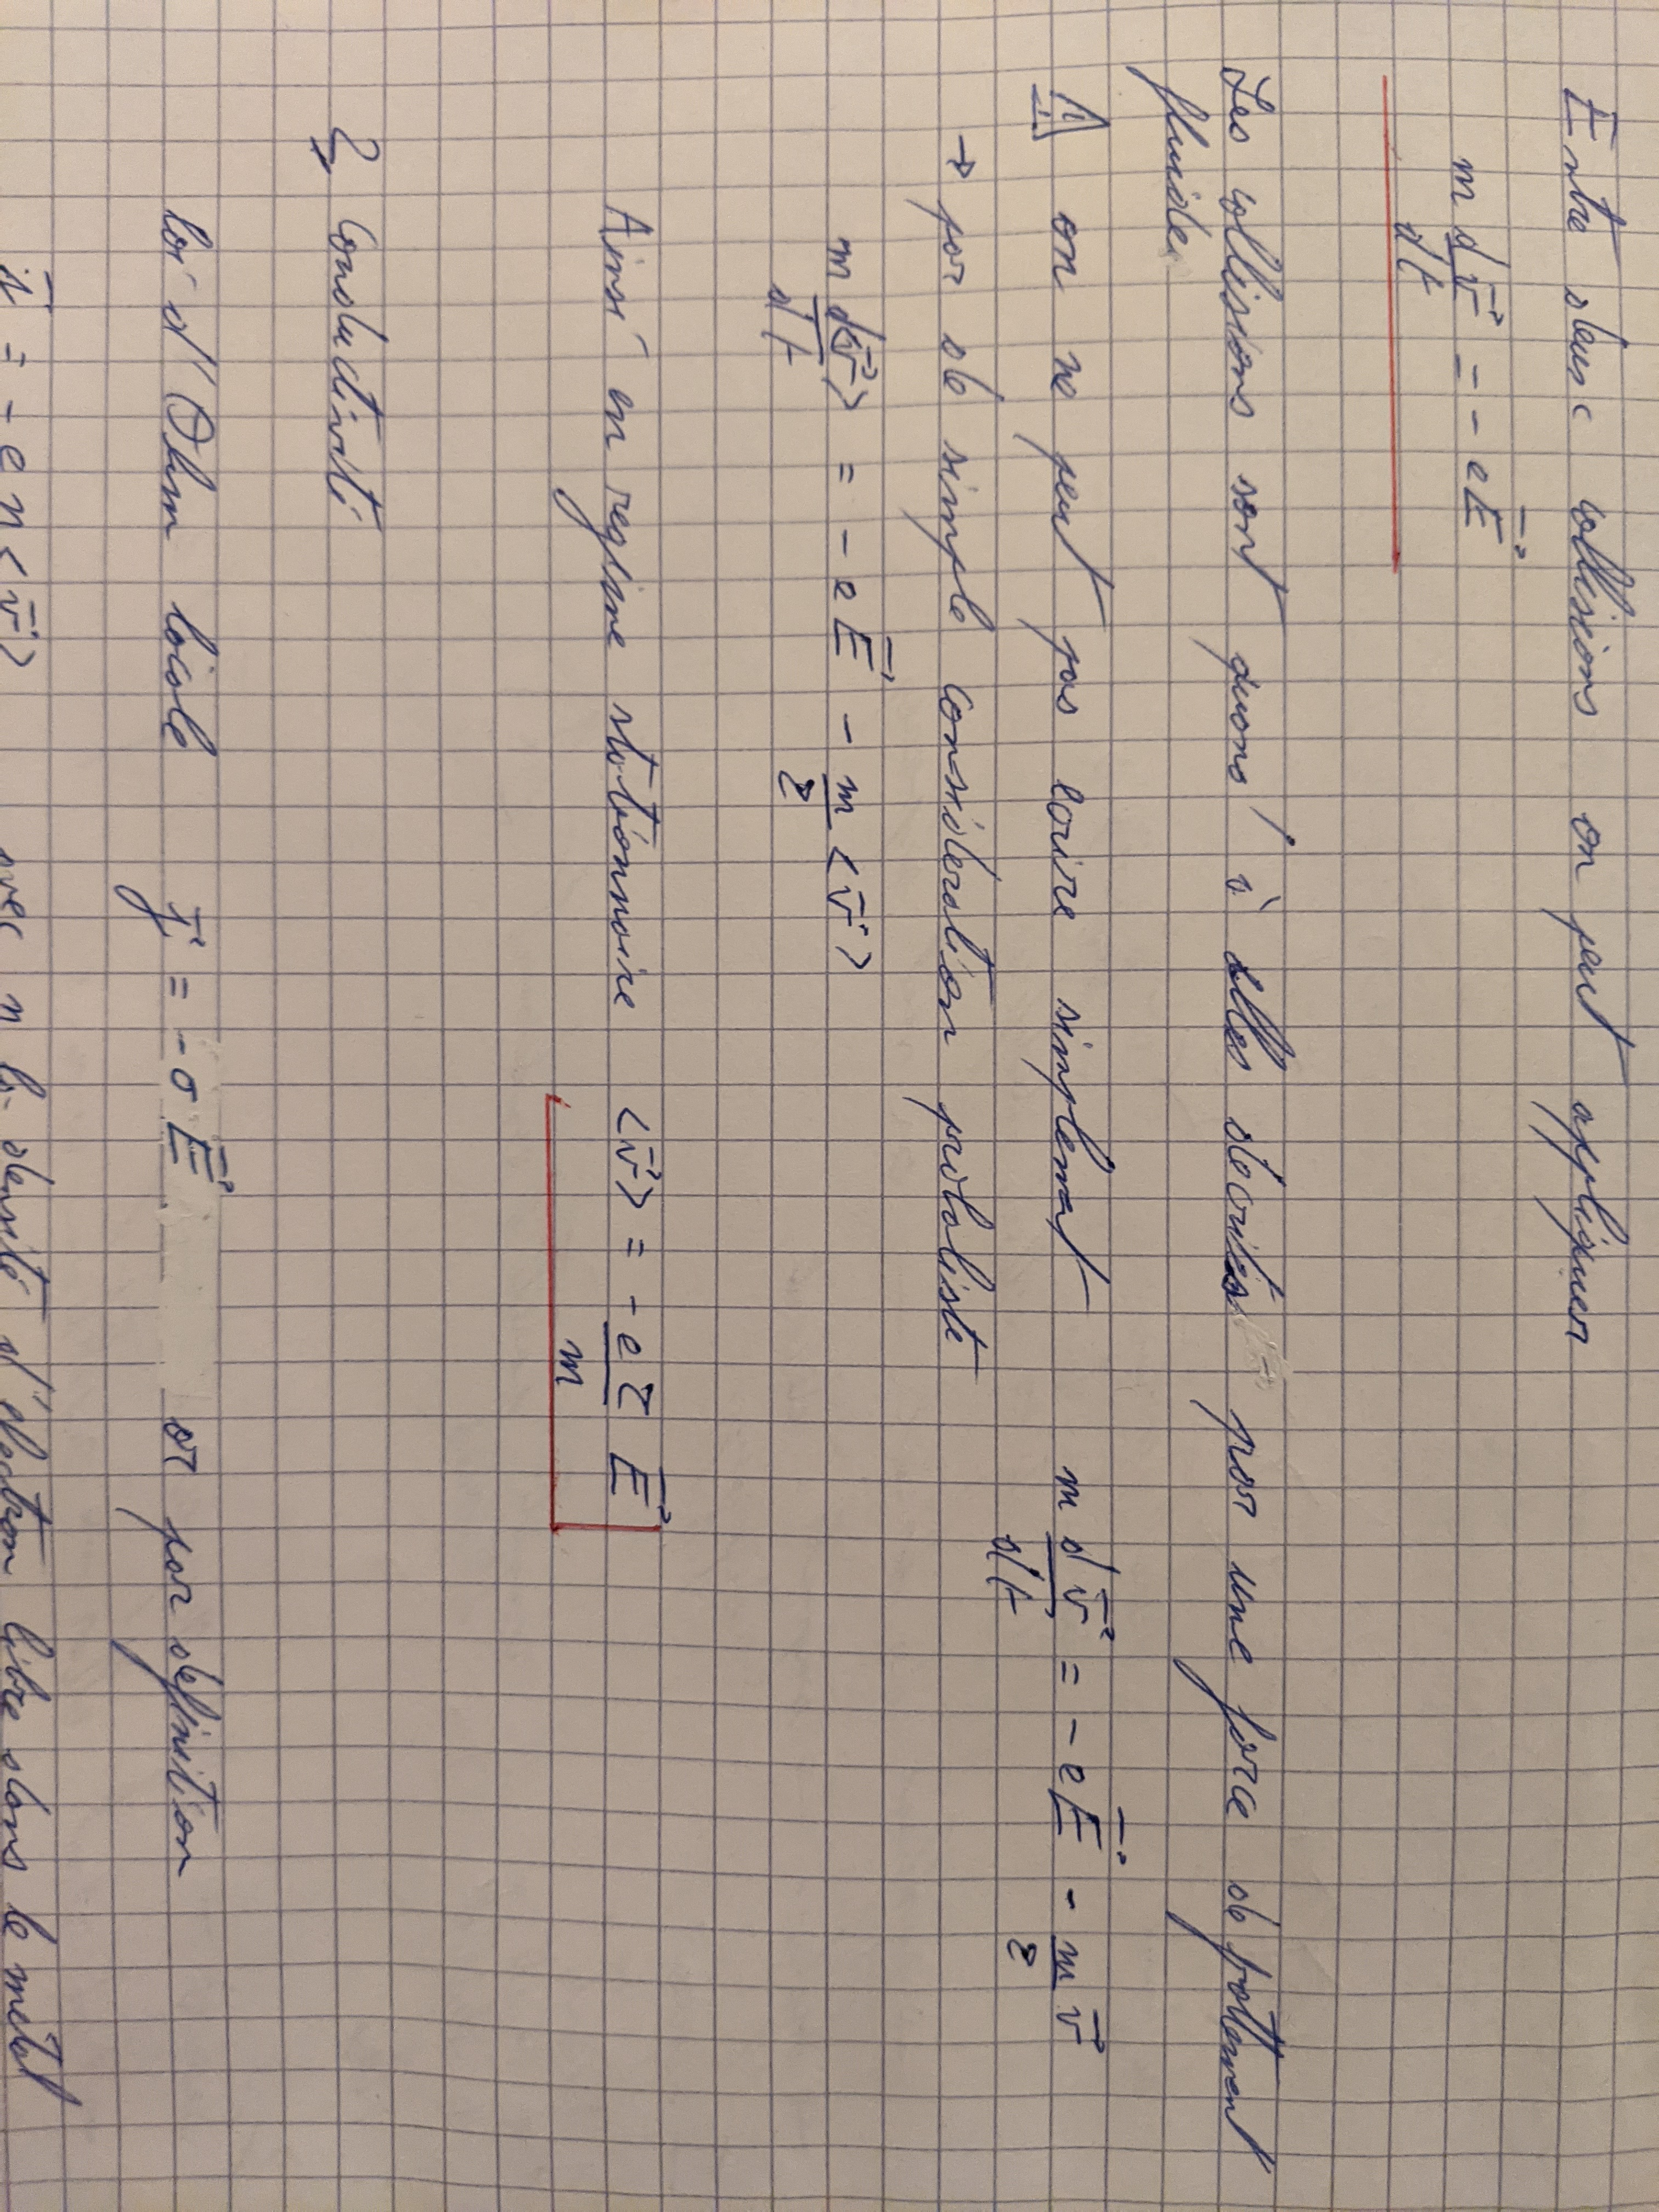 Entre deux collisions on peut appliquer
m d\vec{v}/dt = - e\vec{E}
Les collisions sont quand à elles décrites par une force de frottement
fluide
⚠ on ne peut pas écrire simplement m d\vec{v}/dt = - e\vec{E} - m/τ \vec{v}
→ par de simple considération probabiliste
m d<\vec{v}>/dt = - e\vec{E} - m/τ <\vec{v}>
Ainsi en regime stationnaire <\vec{v}> = - eτ/m \vec{E}
2, Conductivité
loi d'Ohm locale \vec{j} = - σ\vec{E} or par définition
= - e n <\vec{v}> avec n la densité d'électron libre dans le métal